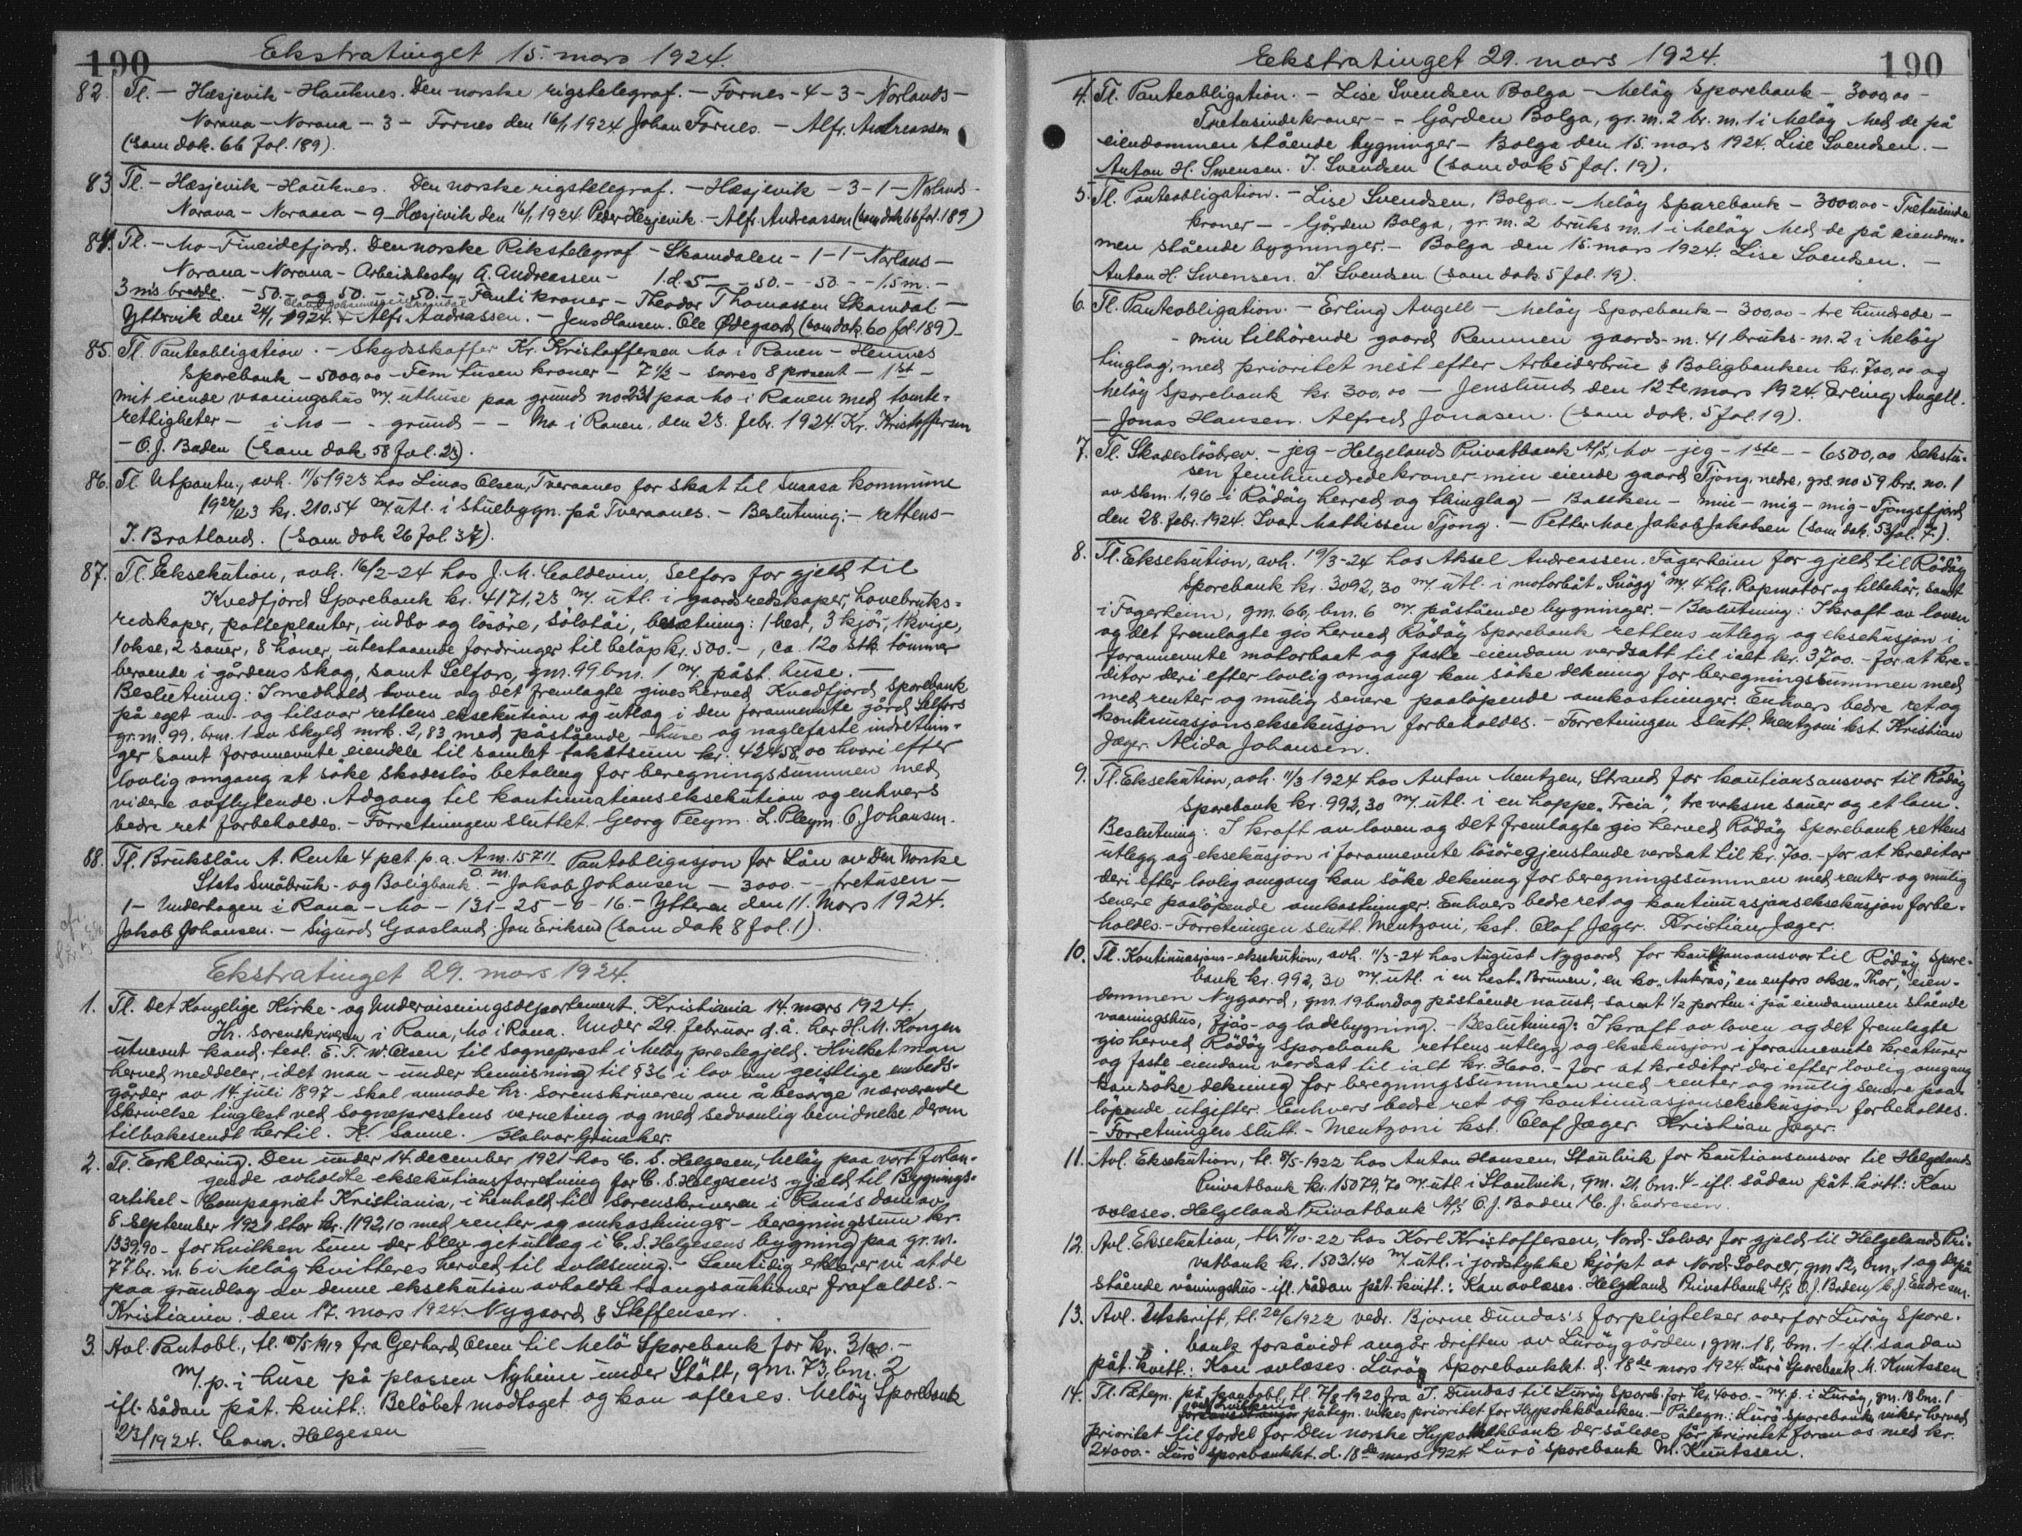 190
Ekstratinget 15. mars 1924.
82. Tl. - Hæsjevik - Hauknes. Den norske rigstelegraf. - Fornes - 4 - 3 - Norlands -
Norana - Norana - 3 - Fornes den 16/1 1924 Johan Fornes. - Alfr. Andreassen
(som dok. 66 fol. 189).
83 Tl. - Hæsjevik - Hauknes. Den norske rigstelegraf. - Hæsjevik - 3 - 1 - Nolands -
Norana - Noranea - 9 - Hæsjevik den 16/1 1924 Peder Hesjevik. - Alfr. Andreassen (som dok 66 fol. 189)
84. Tl. - Mo - Fineidefjord. Den norske Rikstelegraf - Skamdalen - 1 - 1 - Norlans -
Norana - Norana - Arbeidsbesty A. Andreassen - 1.d. 5 - - 50. - - 50 - - 1,5 m. -
3 m's bredde. - 50. - og 50. - - 50. - Femti kroner - Theodor Thomassen Skamdal -
Yttervik den 24/1 1924. + Alfr. Andreassen. - Jens Hansen. Ole Ødegaard (som dok. 60 fol. 189) -
85. Tl. Panteobligation. - Skydsskaffer Kr. Kristoffersen Mo i Ranen - Hemnes
Sparebank - 5000,00 - Fem tusen kroner - 7 1/2 - svares 8 prosent - 1st -
mit eiende vaaningshus m/ uthuse paa grund no 231 paa Mo i Ranen med tomte-
rettigheter - i Mo - - grund - - Mo i Ranen, den 23. febr. 1924. Kr. Kristoffersen
- O. J. Baden (som dok 58 fol. 23).
86. Tl. Utpantn., avh. 11/5 1923 hos Linas Olsen, Tveraanes for skat til Snaasa kommune
1922/23 kr. 210.54 m/ utl. i stuebygn. på Tveraanes. - Beslutning: - rettens -
J. Bratland. (som dok 26 fol 37).
87. Tl. Eksekution, avh. 16/2 - 24 hos J. M. Coldevin, Selfors for gjeld til
Kvedfjord Sparebank kr. 4171,23 m/. utl. i gaardsredskaper, havebruks-
redskaper, potteplanter, indbo og løsøre, sølvtøi, besætning: 1 hest, 3 kjør, 1 kvige,
1 okse, 2 sauer, 8 høner, utestaaende fordringer til beløp kr. 500.-, ca. 120 stk. tømmer
beroende i gårdens skog, samt Selfors, gm. 99 bm. 1 m/. påst. huse. -
Beslutning: I medhold loven og det fremlagte gives herved Kvadfjord Sparebank
på eget an- og tilsvar rettens eksekution og utlæg i den forannevnte gård Selfors
gr. m. 99. brm. 1 av skyld mrk. 2,83 med påstående huse og naglefaste indretnin-
ger samt forannevnte eiendele til samlet takstsum kr. 42458,00 hvori efter
lovlig omgang at søke skadesløs betaling for beregningssummen med
videre avflytende. Adgang til kontinuationseksekution og enhvers
bedre ret forbeholdes. - Forretningen sluttet. Georg Pleym. L. Pleym. O. Johansen.
88. Tl. Brukslån A. Rente 4 pct. p.a. A m. 15711 Pantobligasjon for Lån av Den Norske
Stats Småbruk- og Boligbank. O. m. - Jakob Johansen - 3000. - - tretusen -
1 - Underhagen i Rana - Mo - 131 - 25 - 0 - 16 - Ytteren den 11. Mars 1924.
Jakob Johansen. - Sigurd Gaasland. Jon Eriksen (som dok 8 fol. 1).
Ekstratinget 29. mars 1924.
1. Tl. Det Kongelige Kirke- og Undervisningsdepartement. Kristiania 14. mars 1924.
Hr. Sorenskriveren i Rana, Mo i Rana. Under 29. februar d. å. har H. M. Kongen
utnevnt kand. teol. E. T. W. Olsen til sogneprest i Meløy prestegjeld. Hvilket man
herved meddeler, idet man - under henvisning til § 36 i lov om geistlige embeds-
gårder av 14. juli 1897 - skal anmode hr. Sorenskriveren om å besørge nærværende
skrivelse tinglest ved sogneprestens verneting og med sedvanlig bevidnelse derom
tilbakesendt hertil. K. Sanne. Halvor Grinaker.
2. Tl. Erklæring. Den under 14. december 1921 hos C. S. Helgesen, Meløy paa vort forlan-
gende avholdte eksekutionsforretning for C. S. Helgesen's gjeld til Bygnings-
artikel - Compagniet Kristiania, i henhold til Sorenskriveren i Rana's dom av
8 September 1921 stor kr. 1192,10 med renter og omkostninger - beregningssum kr.
1339,90 - for hvilken sum der blev get utlæg i C. S. Helgesens bygning paa gr. m.
77 br. m. 6 i Meløy kvitteres herved til avlæsning - Samtidig erklærer vi at de
paa grundlag av denne eksekution avholdte tvangsauktioner frafaldes. -
Kristiania, den 17. mars 1924 Nygaard & Steffensen.
3. Avl. Pantobl., tl. 10/5 1919 fra Gerhard Olsen til Melø Sparebank for kr. 3100.-
m/. p. i huse på plassen Nyheim under Støtt, gm. 73, bm. 2
ifl. sådan påt. kvitt.: Beløbet modtaget og kan afleses. Meløy Sparebank
2/3 1924. Conr. Helgesen
Ekstratinget 29. mars 1924.
190
4. Tl. Panteobligation. - Lise Svendsen Bolga - Meløy Sparebank - 3000,00 -
Tretusindekroner - - Gården Bolga, gr. m. 2 br. m. 1 i Meløy Med de på
eiendommen stående bygninger - Bolga den 15. mars 1924. Lise Svendsen. -
Anton H. Swensen. J. Svendsen (som dok 5 fol. 19).
5. Tl. Panteobligation. - Lise Svendsen, Bolga - Meløy Sparebank - 3000,00 - Tretusinde
kroner - - Gården Bolga, gr. m. 2 bruks m. 1 i Meløy Med de på eiendom-
men stående bygninger. - Bolga den 15. mars 1924. Lise Svendsen. -
Anton H. Swensen. J Svendsen (som dok 5 fol. 19).
6. Tl. Panteobligation. - Erling Angell - Meløy Sparebank - 300,00 - tre hundrede -
- min tilhørende gaard Remmen gaards- m. 41 bruks- m. 2 i Meløy
tinglag, med prioritet nest efter Arbeiderbruk & Boligbanken kr. 700,00 og
Meløy Sparebank kr. 300,00 - Jenslund den 12te mars 1924. Erling Angell.
- Jonas Hansen. Alfred Jonasen. (som dok. 5 fol. 19).
7. Tl. Skadesløsbrev. - jeg - Helgelands Privatbank A/S, Mo - jeg - 1ste - - 6500,00 Sekstu-
sen femhundredekroner min eiende gaard Tjong, nedre, grs. no 59, brs. no. 1
av skm. 1,96 i Rødøy herred og thinglag - Bakken - min - mig - mig - Tjongsfjord
den 28. febr. 1924. Ivar Mathissen Tjong. - Petter Moe, Jakob Jakobsen (som dok. 53 fol. 7).
8. Tl. Eksekution, avh. 19/3 - 24 hos Aksel Andreassen. Fagerheim for gjeld til Rødøy
Sparebank kr. 3092,30 m/. utl. i motorbåt "Snøgg" m/ 4 hk. Rapmotor og tilbehør, samt
i Fagerheim, gm. 66, bm. 6 m/. påstående bygninger. - Beslutning: I kraft av loven
og det fremlagte gis herved Rødøy Sparebank rettens utlegg og eksekusjon i
forannevnte motorbaat og faste eiendom verdsatt til ialt kr. 3700.- for at kre-
ditor deri efter lovlig omgang kan søke dekning for beregningssummen med
med renter og mulig senere paaløpende omkostninger. Enhvers bedre ret og
kontinuasjonseksekusjon forbeholdes. - Forretningen slutt. Mentzoni kst. Kristian
Jæger. Alida Johansen.
9. Tl. Eksekution, avh. 11/3 1924 hos Anton Mentzen, Strand for kautionsansvar til Rødøy
Sparebank kr. 992,30 m/. utl. i en hoppe "Freia", tre voksne sauer og et lam.
Beslutning: I kraft av loven og det fremlagte gis herved Rødøy Sparebank rettens
utlegg og eksekusjon i forannevnte løsøregjenstande verdsat til kr. 700.- for at kreditor
deri efter lovlig omgang kan søke dekning for beregningssummen med renter og mulig
senere paaløpende omkostninger. Enhvers bedre ret og kontinuasjonseksekusjon forbe-
holdes. - Forretningen slutt. Mentzoni, kst. Olaf Jæger. Kristian Jæger.
10. Tl. Kontinuasjons-eksekution, avh. 11/3 - 24 hos August Nygaard for kautjonsansvar til Rødøy Spare-
bank kr. 992,30 m/. utl. i en hest "Brunen", en ko "Antros", en enfors okse "Thor", eien-
dommen Nygaard, gm. 19 bm. og påstående naust, samt 1/2 parten i på eiendommen stående
vaaningshus, fjøs- og ladebygning. - Beslutning: I kraft av loven og det fremlagte
gis herved Rødøy Sparebank rettens utlegg og eksekusjon i forannevnte kreaturer
og faste eiendom verdsat til ialt kr. - for at kreditor deri efter lovlig omgang
kan søke dekning for beregningssummen med renter og mulig senere paa-
løpende utgifter. Enhvers bedre ret og kontinuasjonseksekusjon forbeholdes.
- Forretningen slutt. - Mentzoni kst. Olaf Jæger. Kristian Jæger.
11. Avl. Eksekution, tl. 8/5 - 1922 hos Anton Hansen, Staulvik for kautionsansvar til Helgelands
Privatbank kr. 15079,70 m/. utl. i Staulvik, gm. 21, bm. 4 - ifl. sådan påt. kvitt.: Kan
avlæses. Helgelands Privatbank A/S O. J. Baden / C. J. Endresen.
12. Avl. Eksekution, tl. /10 - 22 hos Karl Kristoffersen, Nord-Solvær for gjeld til Helgelands Pri-
vatbank kr. 15031.40 m/. utl. i jordstykke kjøpt av Nord-Solvær, gm. 12, bm. 1 og de på
stående våningshus - ifl. sådan påt. kvitt.: Kan avlæses. Helgeland Privatbank A/S O. J. Baden / C. J. Endresen.
13. Avl. Utskrift, tl. 20/6 1922 vedr. Bjarne Dundas's forpligtelser overfor Lurøy Spare-
bank forsåvidt angår driften av Lurøygården, gm. 18, bm. 1 - ifl. saadan
påt. kvitt.: Kan avlæses. Lurøy Sparebankkt. d. 18de mars 1924 Lurø Sparebank M. Knutssen
14. Tl. Påtegn. på pantobl. tl. 7/8 1920 fra J. Dundas til Lurøy Spareb. for kr. 4000.- m/. p. i Lurøy, gm. 18 bm. 1 -
ved hvilken påtegn. vikes prioritet for Hypotekbanken. - Påtegn.: Lurø Sparebank viker herved
prioritet til fordel for Den norske Hypothekbank der således får prioritet foran os med kr.
24000.- Lurø Sparebankkt. d. 18de mars 1924. Lurø Sparebank M. Knutssen.